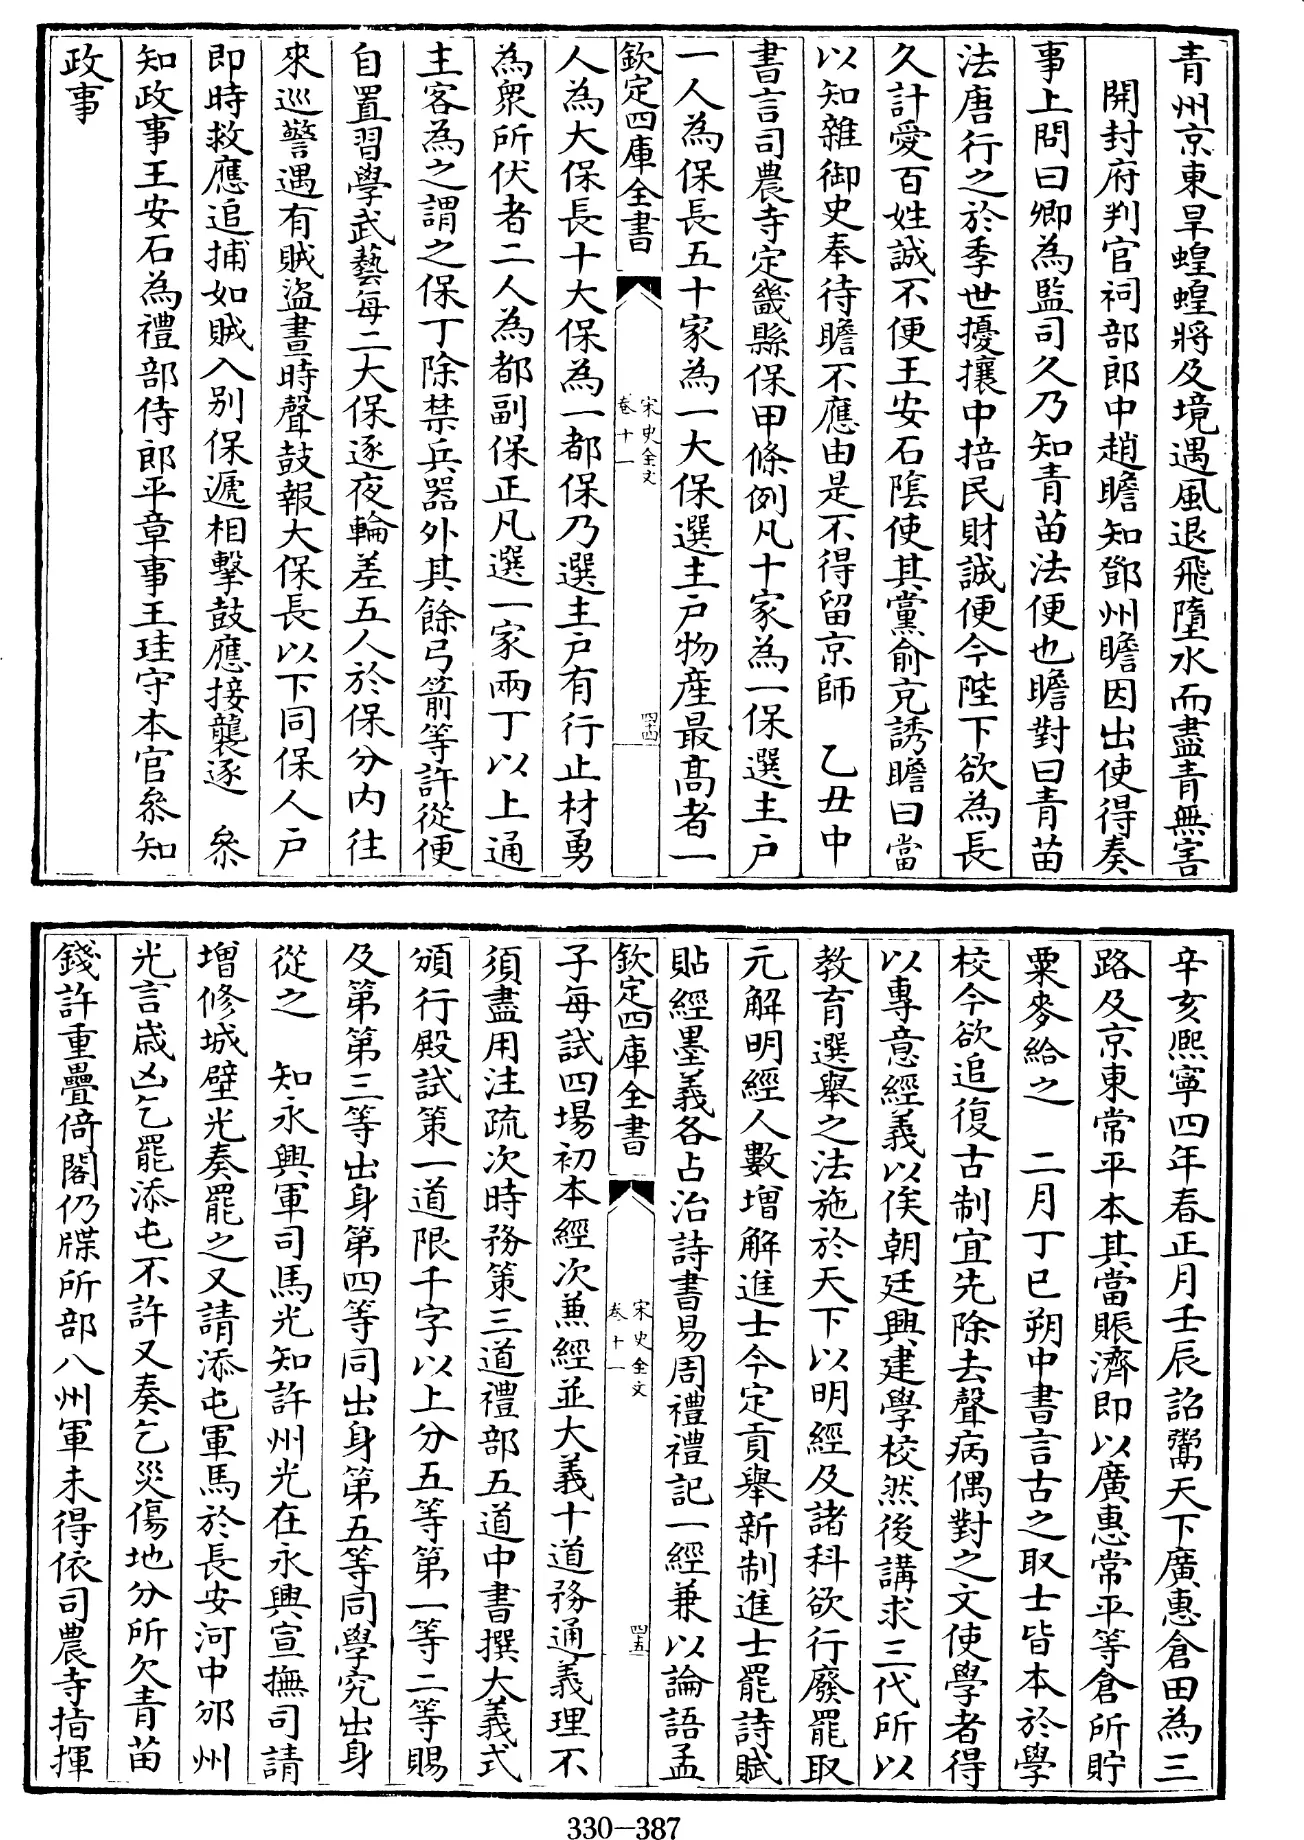 青州京東旱蝗蝗將及境遇風退飛墮水而盡青無害
開封府判官祠部郎中趙瞻知鄧州瞻因出使得奏
事上問曰卿為監司久乃知青苗法便也瞻對曰青苗
法唐行之於季世擾攘中掊民財誠便今陛下欲為長
久計愛百姓誠不便王安石陰使其黨俞充誘瞻曰當
以知雜御史奉待瞻不應由是不得留京師　乙丑中
書言司農寺定畿縣保甲條例凡十家為一保選主户
一人為保長五十家為一大保選主户物產最高者一
欽定四庫全書
宋史全文
卷十一
四四
人為大保長十大保為一都保乃選主户有行止材勇
為衆所伏者二人為都副保正凡選一家兩丁以上通
主客為之謂之保丁除禁兵器外其餘弓箭等許從便
自置習學武藝每二大保逐夜輪差五人於保分內往
來巡警遇有賊盜晝時聲鼓報大保長以下同保人户
即時救應追捕如賊入别保遞相擊鼓應接襲逐　叅
知政事王安石為禮部侍郎平章事王珪守本官叅知
政事
辛亥熈寧四年春正月壬辰詔鬻天下廣惠倉田為三
路及京東常平本其當賑濟即以廣惠常平等倉所貯
粟麥給之　二月丁巳朔中書言古之取士皆本於學
校今欲追復古制宜先除去聲病偶對之文使學者得
以專意經義以俟朝廷興建學校然後講求三代所以
教育選舉之法施於天下以明經及諸科欲行廢罷取
元解明經人數增解進士今定貢舉新制進士罷詩賦
貼經墨義各占治詩書易周禮禮記一經兼以論語孟
欽定四庫全書
宋史全文
卷十一
四五
子每試四場初本經次兼經並大義十道務通義理不
須盡用注疏次時務策三道禮部五道中書撰大義式
頒行殿試策一道限千字以上分五等第一等二等賜
及第第三等出身第四等同出身第五等同學究出身
從之　知永興軍司馬光知許州光在永興宣撫司請
增修城壁光奏罷之又請添屯軍馬於長安河中邠州
光言歳凶乞罷添屯不許又奏乞災傷地分所欠青苗
錢許重疊倚閣仍牒所部八州軍未得依司農寺指揮
330—387